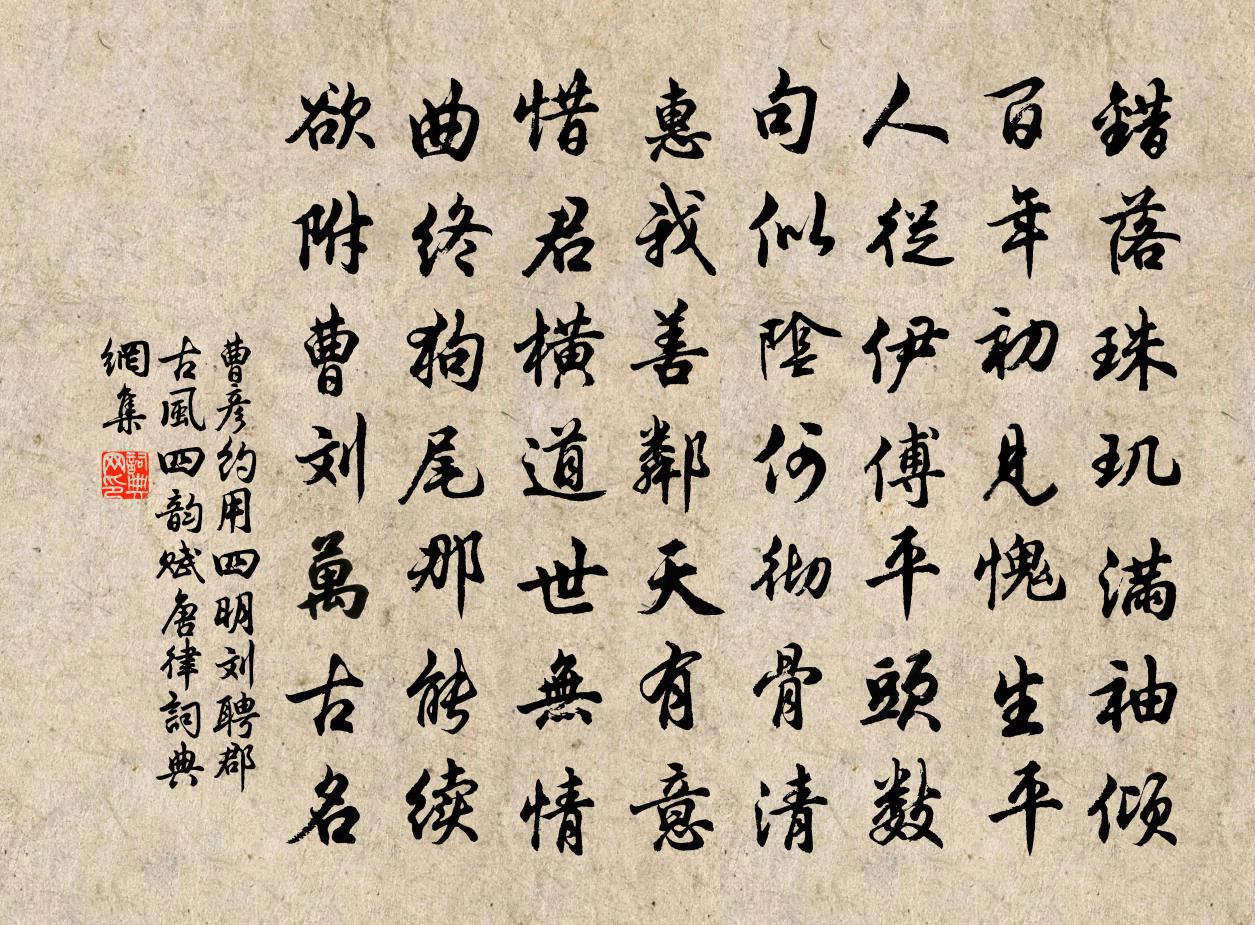 錯落珠玑滿袖傾
百年初見愧生平
人從伊傅平頭數
句似陰何徹骨清
惠我善鄰天有意
惜君橫道世無情
曲终狗尾那能续
欲附曹刘萬古名
曹彦约用四明刘聘郡
古風四韵赋唐律詞典
網集